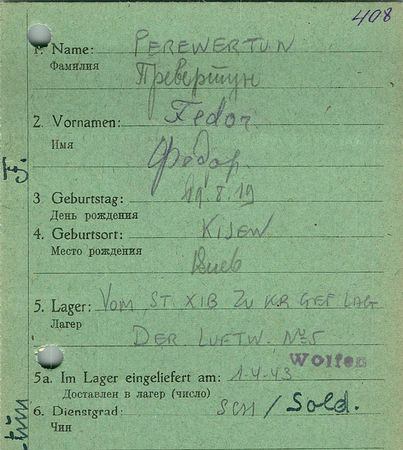 408
1. Name: PEREWERTUN
Фамилия Превертун
2. Vornamen: Fedor
Имя Федор
3 Geburtstag: 19.8.19
День рождения
4. Geburtsort: KIJEW
Место рождения Киев
5. Lager: VOM ST. XIB ZU KR GEF LAG
Лагерь DER LUFTW. No 5
Wolfen
5a. Im Lager eingeliefert am: 1-4-43
Доставлен в лагерь (число)
6. Dienstgrad: SCH / Sold.
Чин